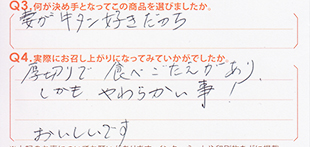 Q3.何が決め手となってこの商品を選びましたか。
妻が牛タン好きだから
Q4.実際にお召し上がりになってみていかがでしたか。
厚切りで食べごたえがあり、
しかもやわらかい事!
おいしいです